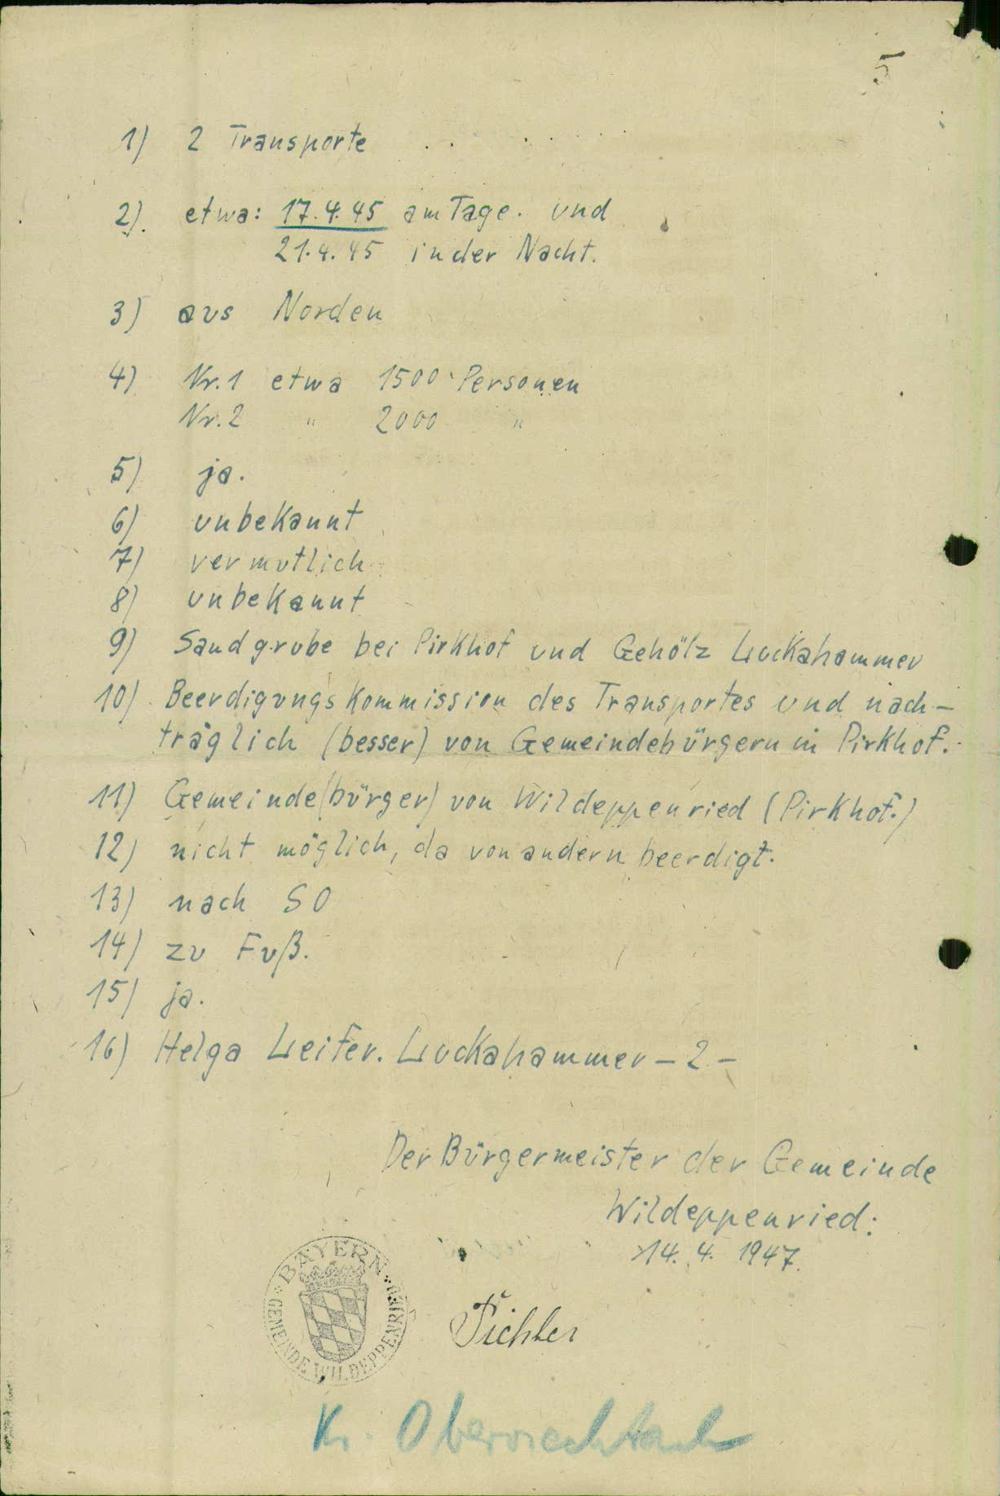 5
1) 2 Transporte
2). etwa: 17.4.45 am Tage. und
21.4.45 in der Nacht.
3) aus Norden
4) Nr. 1 etwa 1500 Personen
Nr. 2 " 2000 "
5) ja.
6) unbekannt
7) vermutlich
8) unbekannt
9) Sandgrube bei Pirkhof und Gehölz Luckahammer
10) Beerdigungskommission des Transportes und nach-
träglich (besser) von Gemeindebürgern in Pirkhof.
11) Gemeinde(bürger) von Wildeppenried (Pirkhof.)
12) nicht möglich, da von andern beerdigt.
13) nach SO
14) zu Fuß.
15) ja.
16) Helga Leifer. Luckahammer – 2 –
Der Bürgermeister der Gemeinde
Wildeppenried:
14. 4. 1947.
BAYERN
GEMEINDE WILDEPPENRIED
Pichler
Kr. Oberviechtach